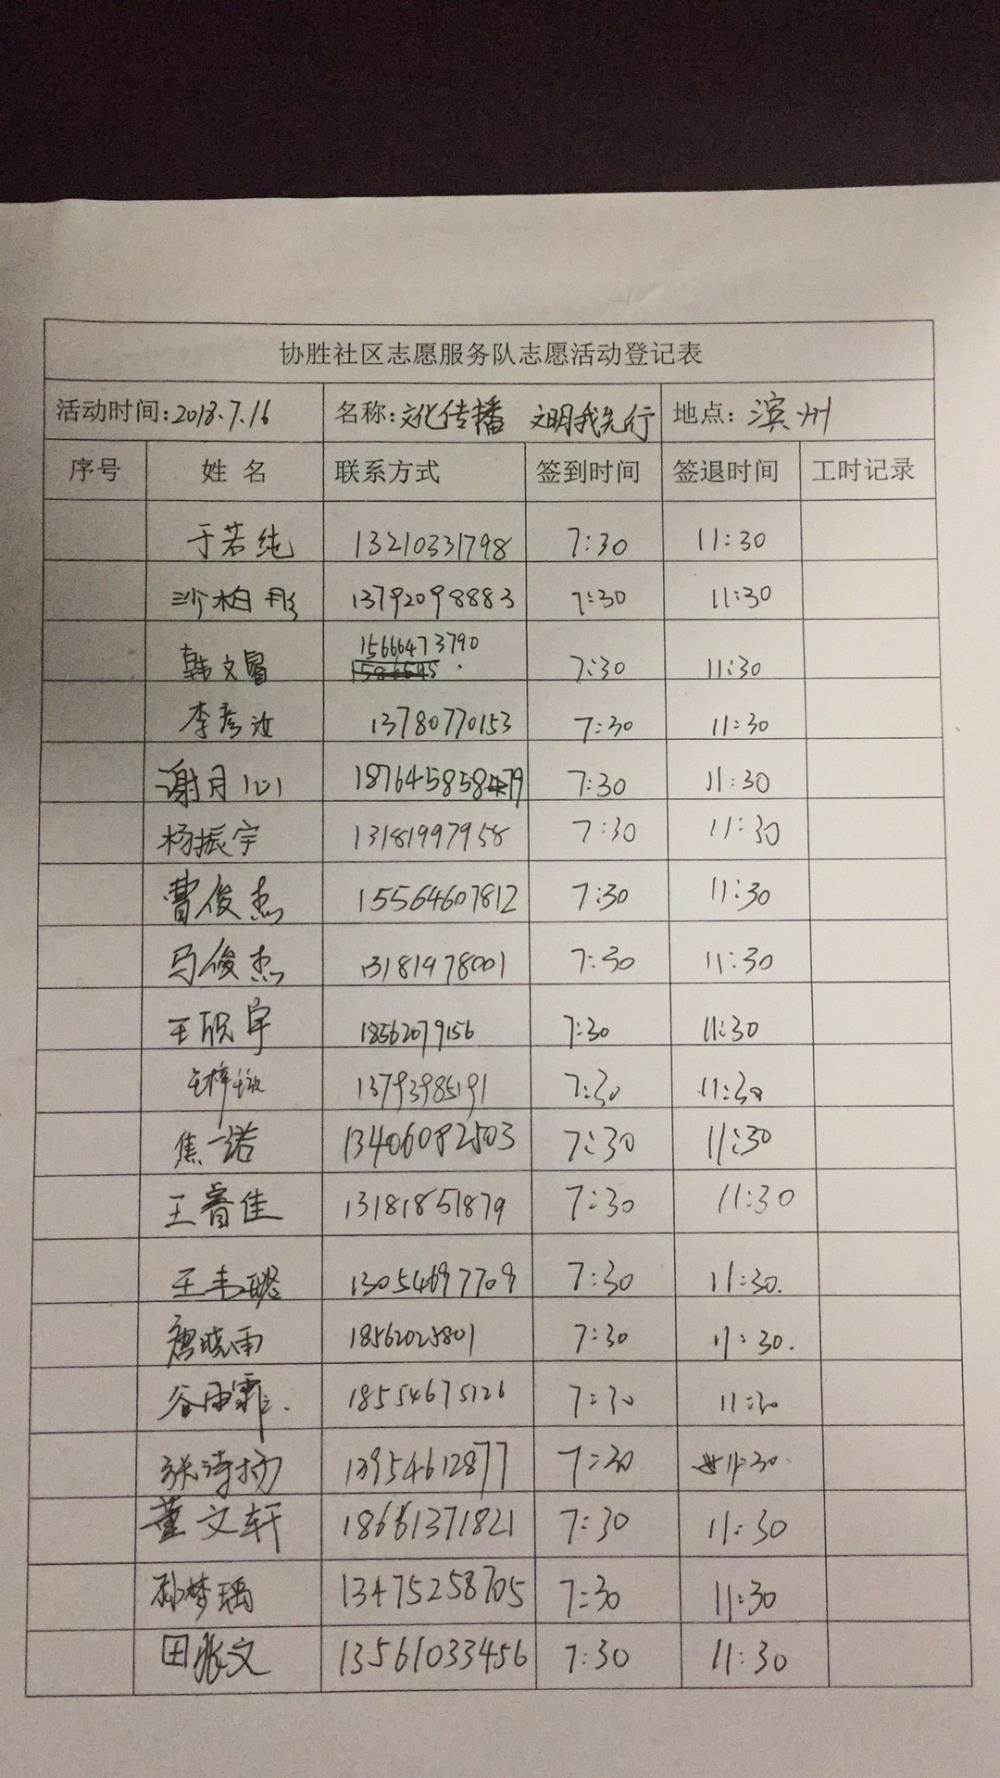 协胜社区志愿服务队志愿活动登记表
活动时间:2018.7.16 名称:文化传播 文明我先行 地点:滨州
序号 姓名 联系方式 签到时间 签退时间 工时记录
于若纯 13210331798 7:30 11:30
沙柏彤 13792098883 7:30 11:30
韩文冒 15666473790 7:30 11:30
李彦汝 13780770153 7:30 11:30
谢月心 7:30 11:30
杨振宇 13181997958 7:30 11:30
曹俊杰 15564607812 7:30 11:30
马俊杰 13181978001 7:30 11:30
王宇 18562079156 7:30 11:30
王梓 13793985191 7:30 11:30
焦一诺 13406082503 7:30 11:30
王睿佳 13181851879 7:30 11:30
王韦璐 13054697709 7:30 11:30.
唐晓雨 18562025801 7:30 11:30.
谷雨霏. 18554675126 7:30 11:30
张诗扬 13954612877 7:30 11:30
董文轩 18661371821 7:30 11:30
孙梦瑀 13475258705 7:30 11:30
田张文 13561033456 7:30 11:30